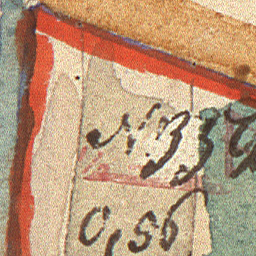 N. 33
0,56